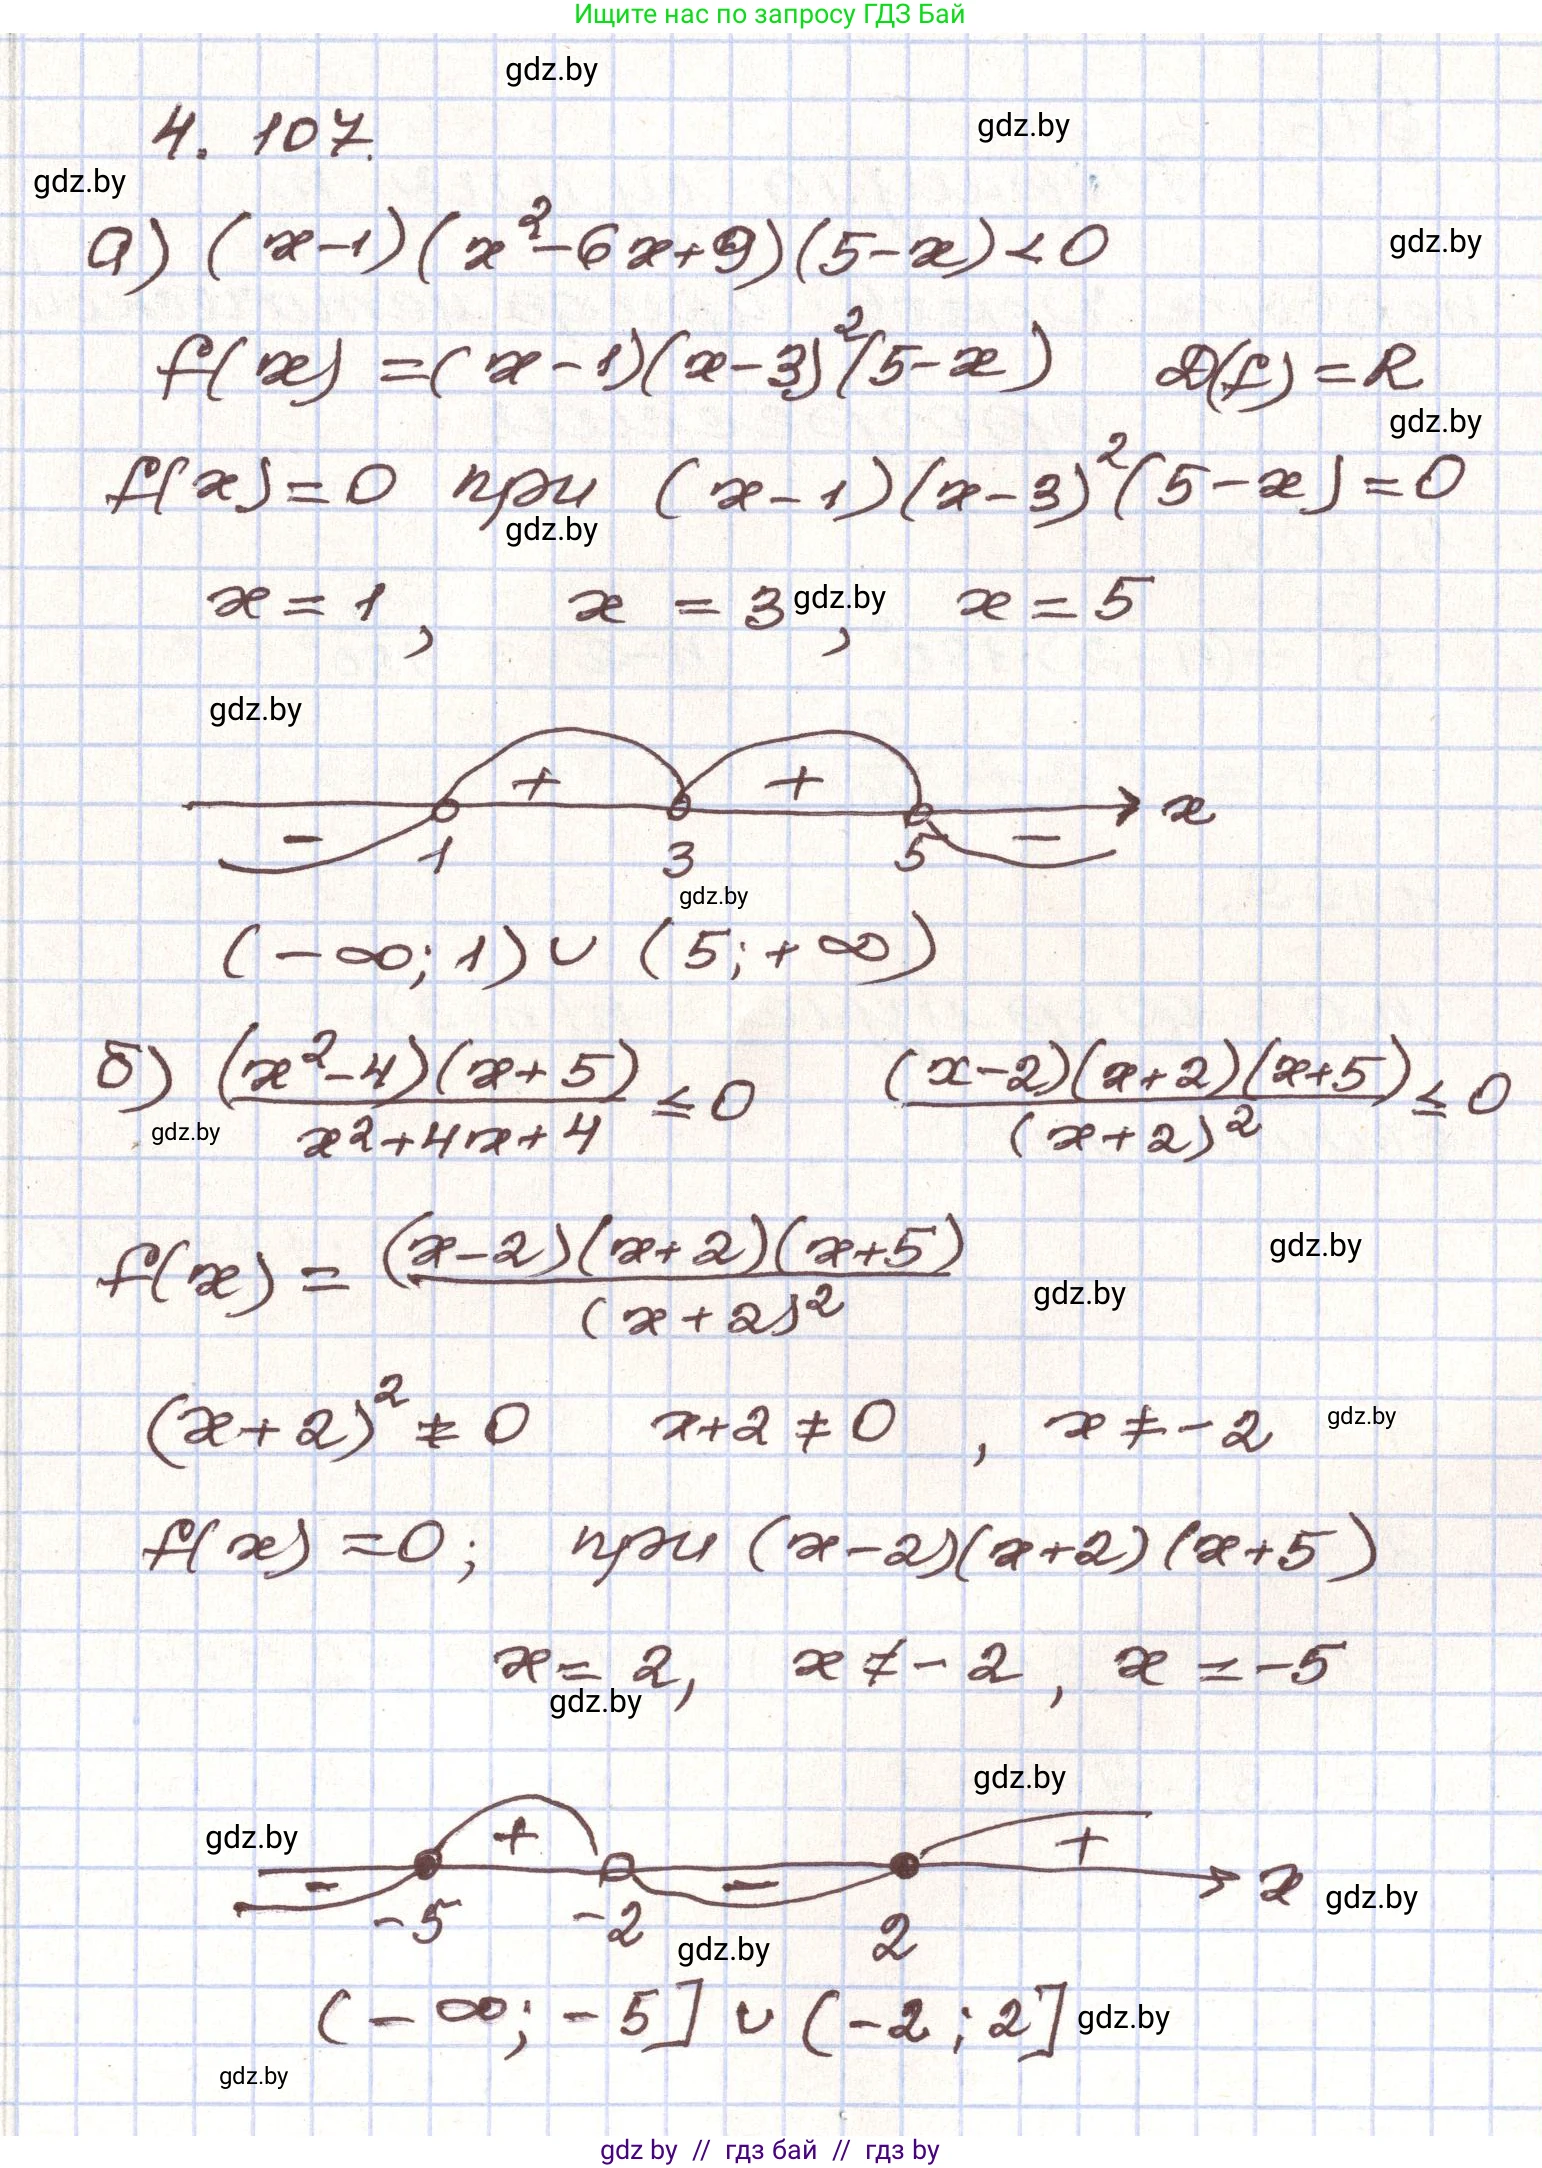 Ищите нас по запросу ГДЗ Бай
gdz.by
4. 107.
gdz.by
gdz.by
а) (x-1)(x²-6x+9)(5-x)<0
gdz.by
f(x) =(x-1)(x-3)²(5-x) D(f)=R
gdz.by
f(x)=0 при (x-1)(x-3)²(5-x)=0
gdz.by
x=1, x = 3, x=5
gdz.by
gdz.by
+ +
x
- 1 3 5 -
gdz.by
(-∞; 1)∪ (5; +∞)
б) (x²-4)(x+5)/x²+4x+4 ≤ 0 (x-2)(x+2)(x+5)/(x+2)² ≤ 0
gdz.by
f(x) = (x-2)(x+2)(x+5)/(x+2)²
gdz.by
gdz.by
(x+2)² ≠ 0 x+2 ≠ 0 , x≠-2
gdz.by
f(x) =0; при (x-2)(x+2)(x+5)
x= 2, x ≠ -2, x = -5
gdz.by
gdz.by
gdz.by
+ +
- - x
gdz.by
-5 -2 2
gdz.by
(-∞; -5] ∪ (-2; 2]
gdz.by
gdz.by
gdz by // гдз бай // гдз by